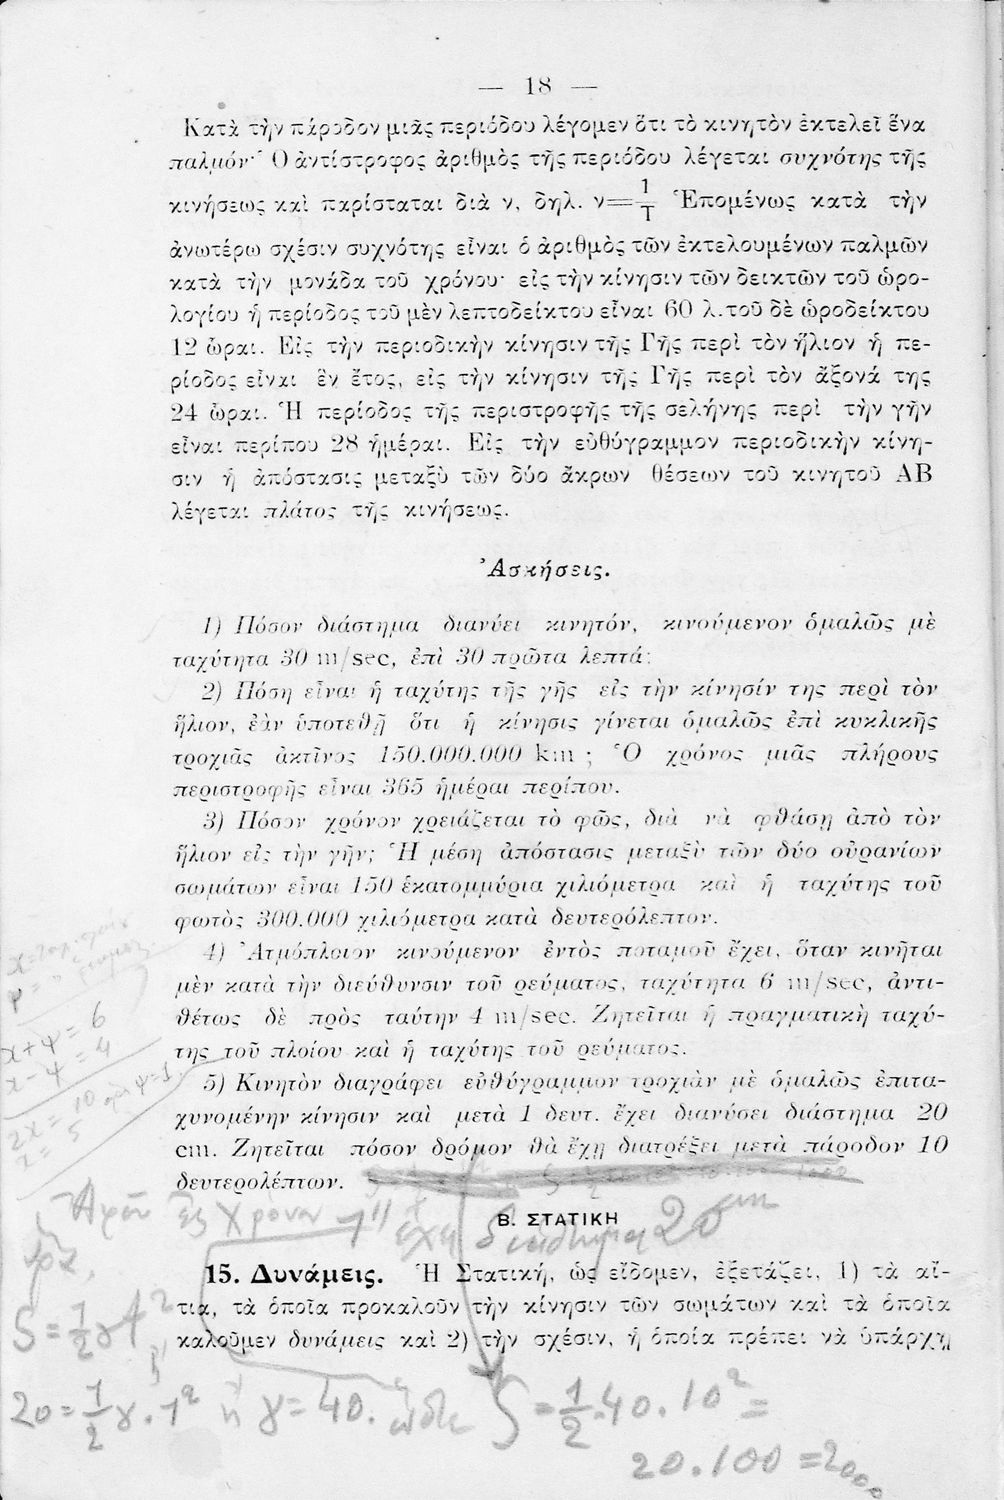 — 18 —
Κατὰ τὴν πάροδον μιᾶς περιόδου λέγομεν ὅτι τὸ κινητὸν ἐκτελεῖ ἕνα
παλμόν· Ὁ ἀντίστροφος ἀριθμὸς τῆς περιόδου λέγεται συχνότης τῆς
κινήσεως καὶ παρίσταται διὰ ν, δηλ. ν=1/Τ Ἑπομένως κατὰ τὴν
ἀνωτέρω σχέσιν συχνότης εἶναι ὁ ἀριθμὸς τῶν ἐκτελουμένων παλμῶν
κατὰ τὴν μονάδα τοῦ χρόνου· εἰς τὴν κίνησιν τῶν δεικτῶν τοῦ ὡρο-
λογίου ἡ περίοδος τοῦ μὲν λεπτοδείκτου εἶναι 60 λ. τοῦ δὲ ὡροδείκτου
12 ὧραι. Εἰς τὴν περιοδικὴν κίνησιν τῆς Γῆς περὶ τὸν ἥλιον ἡ πε-
ρίοδος εἶναι ἓν ἔτος, εἰς τὴν κίνησιν τῆς Γῆς περὶ τὸν ἄξονά της
24 ὧραι. Ἡ περίοδος τῆς περιστροφῆς τῆς σελήνης περὶ τὴν γῆν
εἶναι περίπου 28 ἡμέραι. Εἰς τὴν εὐθύγραμμον περιοδικὴν κίνη-
σιν ἡ ἀπόστασις μεταξὺ τῶν δύο ἄκρων θέσεων τοῦ κινητοῦ ΑΒ
λέγεται πλάτος τῆς κινήσεως.
Ἀσκήσεις.
1) Πόσον διάστημα διανύει κινητόν, κινούμενον ὁμαλῶς μὲ
ταχύτητα 30 m/sec, ἐπὶ 30 πρῶτα λεπτά;
2) Πόση εἶναι ἡ ταχύτης τῆς γῆς εἰς τὴν κίνησίν της περὶ τὸν
ἥλιον, ἐὰν ὑποτεθῇ ὅτι ἡ κίνησις γίνεται ὁμαλῶς ἐπὶ κυκλικῆς
τροχιᾶς ἀκτῖνος 150.000.000 km ; Ὁ χρόνος μιᾶς πλήρους
περιστροφῆς εἶναι 365 ἡμέραι περίπου.
3) Πόσον χρόνον χρειάζεται τὸ φῶς, διὰ νὰ φθάσῃ ἀπὸ τὸν
ἥλιον εἰς τὴν γῆν; Ἡ μέση ἀπόστασις μεταξὺ τῶν δύο οὐρανίων
σωμάτων εἶναι 150 ἑκατομμύρια χιλιόμετρα καὶ ἡ ταχύτης τοῦ
φωτὸς 300.000 χιλιόμετρα κατὰ δευτερόλεπτον.
4) Ἀτμόπλοιον κινούμενον ἐντὸς ποταμοῦ ἔχει, ὅταν κινῆται
μὲν κατὰ τὴν διεύθυνσιν τοῦ ρεύματος, ταχύτητα 6 m/sec, ἀντι-
θέτως δὲ πρὸς ταύτην 4 m/sec. Ζητεῖται ἡ πραγματικὴ ταχύ-
της τοῦ πλοίου καὶ ἡ ταχύτης τοῦ ρεύματος.
5) Κινητὸν διαγράφει εὐθύγραμμον τροχιὰν μὲ ὁμαλῶς ἐπιτα-
χυνομένην κίνησιν καὶ μετὰ 1 δευτ. ἔχει διανύσει διάστημα 20
cm. Ζητεῖται πόσον δρόμον θὰ ἔχῃ διατρέξει μετὰ πάροδον 10
δευτερολέπτων.
x+ψ=6
x-ψ=4
2x=10 ψ=1
x=5
Ἀφοῦ εἰς χρόνον 1" ἔχει διάστημα 20 cm
Β. ΣΤΑΤΙΚΗ
15. Δυνάμεις. Ἡ Στατική, ὡς εἴδομεν, ἐξετάζει, 1) τὰ αἴ-
τια, τὰ ὁποῖα προκαλοῦν τὴν κίνησιν τῶν σωμάτων καὶ τὰ ὁποῖα
καλοῦμεν δυνάμεις καὶ 2) τὴν σχέσιν, ἡ ὁποία πρέπει νὰ ὑπάρχῃ
S=1/2 γt²
20=1/2 γ.1² ἢ γ=40. ὥστε S=1/2.40.10²=
20.100=2000